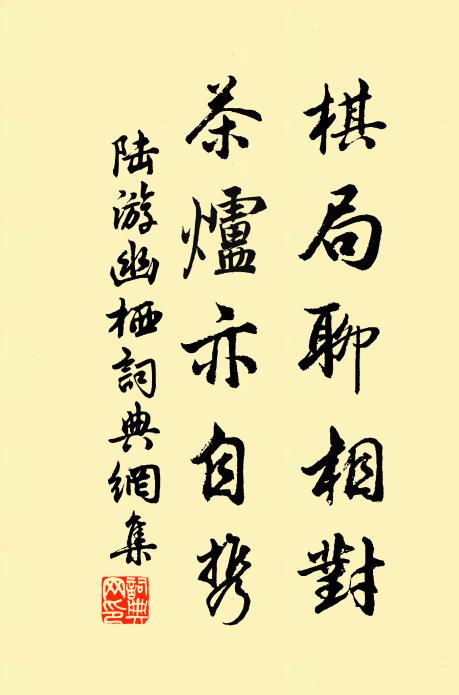 棋局聊相對
茶爐亦自携
陸游幽栖詞典網集
詞典網印